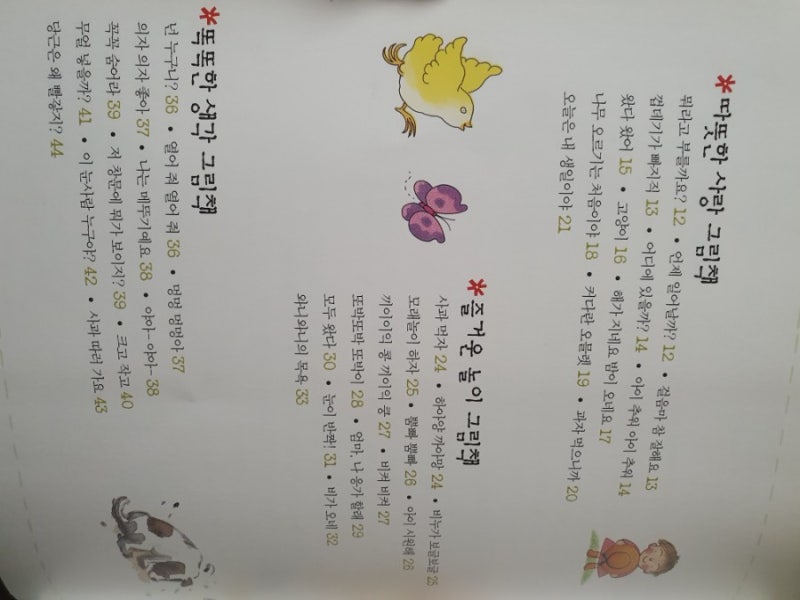 *따뜻한 사랑 그림책
뭐라고 부를까요? 12 • 언제 일어날까? 12 • 걸음마 참 잘해요 13
껍데기가 빠지직 13 • 어디에 있을까? 14 • 아이 추워 아이 추워 14
왔다 왔어 15 • 고양이 16 • 해가 지네요 밤이 오네요 17
나무 오르기는 처음이야 18 • 커다란 오믈렛 19 • 과자 먹으니까 20
오늘은 내 생일이야 21
*즐거운 놀이 그림책
사과 먹자 24 • 하이얀 까아망 24 • 비누가 보글보글 25
모래놀이 하자 25 • 뿜빠 뿜빠 26 • 아이 시원해 26
끼이이익 쿵 끼이익 쿵 27 • 비켜 비켜 27
또박또박 또박이 28 • 엄마, 나 응가 할래 29
모두 왔다 30 • 눈이 반짝! 31 • 비가 오네 32
와니와니의 목욕 33
*똑똑한 생각 그림책
넌 누구니? 36 • 열어 줘 열어 줘 36 • 멍멍 멍멍아 37
의자 의자 좋아 37 • 나는 메뚜기예요 38 • 야아~ 이야~ 38
꼭꼭 숨어라 39 • 저 창문에 뭐가 보이지? 39 • 크고 작고 40
무얼 넣을까? 41 • 이 눈사람 누구야? 42 • 사과 따러 가요 43
당근은 왜 빨갛지? 44